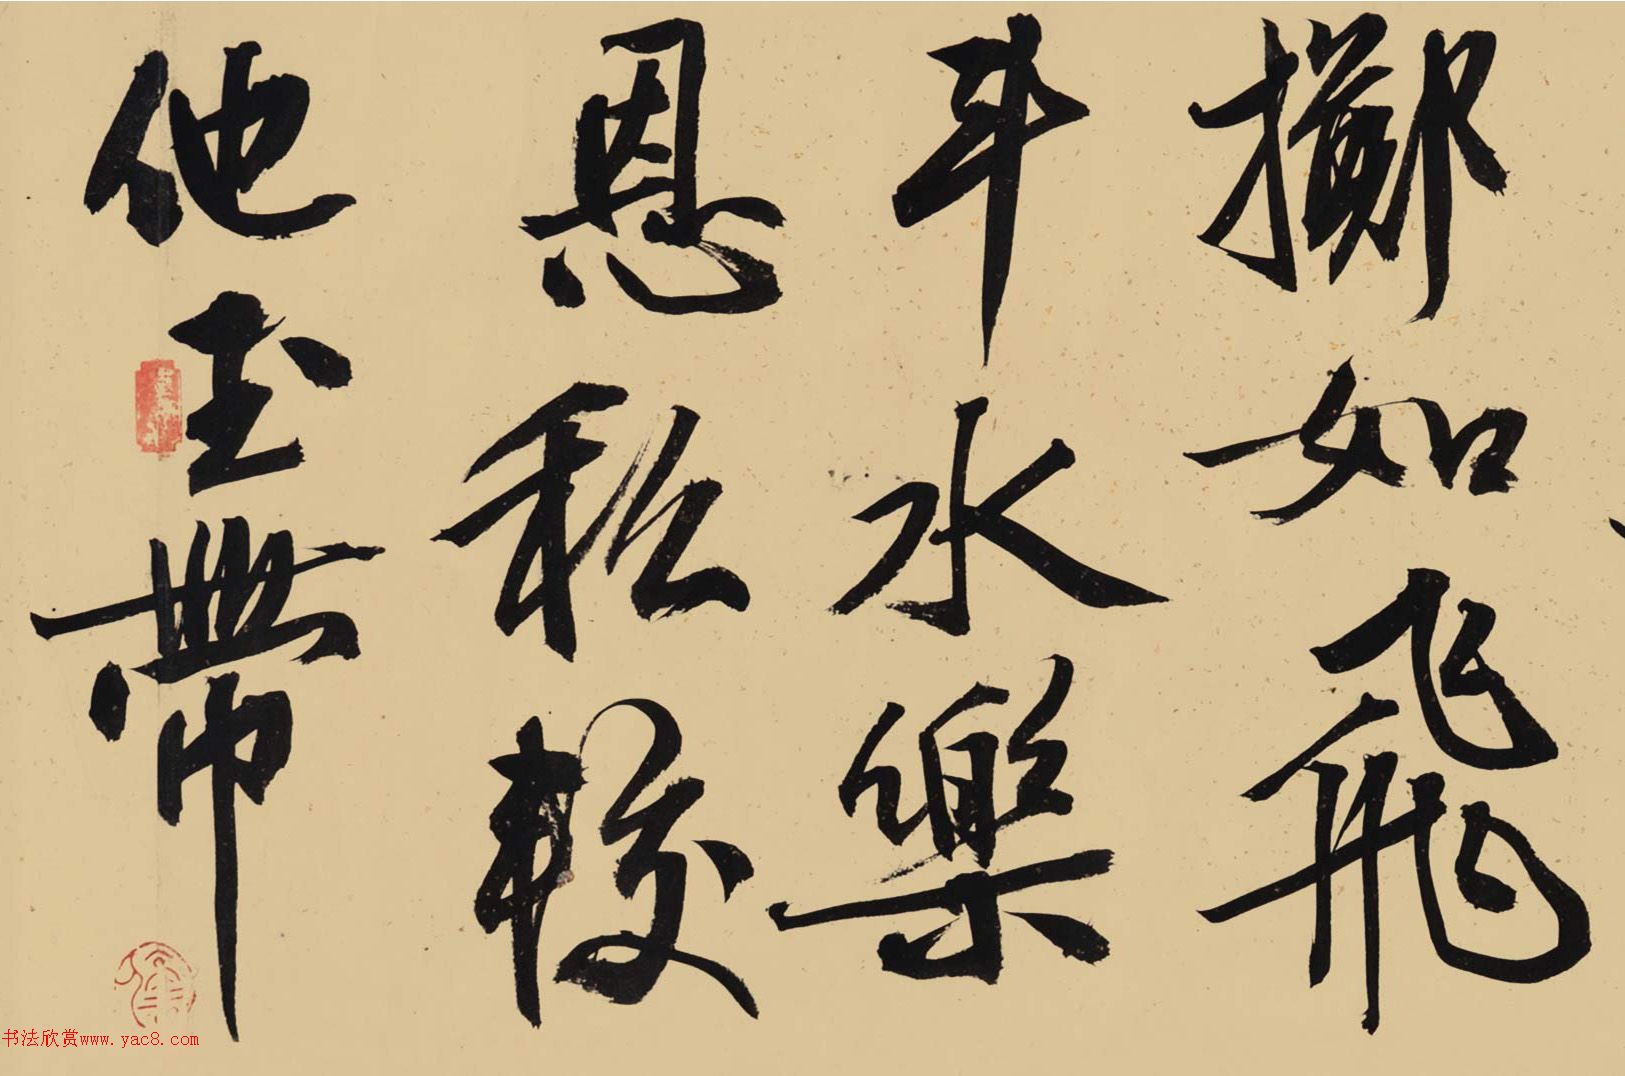 擲如飛
斗水樂
恩私較
他玉帶
书法欣赏www.yac8.com